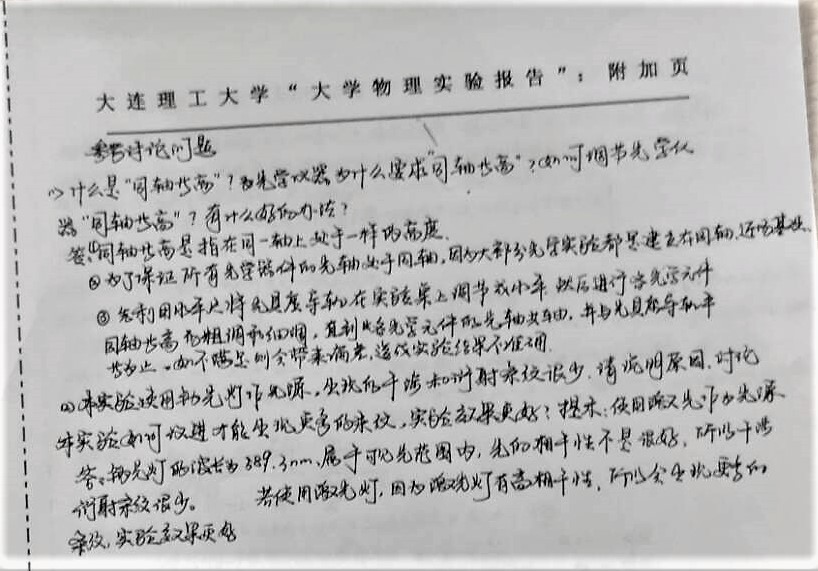 大连理工大学“大学物理实验报告”：附加页
讨论问题
(1) 什么是“同轴共高”？为光学仪器为什么要求“同轴共高”？如何调节光学仪
器“同轴共高”？有什么好的办法？
答：①同轴共高是指在同一轴上处于一样的高度.
②为了保证所有光学器件的光轴处于同轴，因为大部分光学实验都是建立在同轴、近场基础.
③ 先利用水平尺将光具座导轨在实验桌上调节成水平 然后进行各光学元件
同轴共高的粗调和细调，直到各光学元件的光轴共轴，并与光具座导轨平
行为止。如不满足则会带来偏差，造成实验结果不准确.
(2) 本实验使用钠光灯作光源，出现的干涉和衍射条纹很少. 请说明原因. 讨论
本实验如何改进才能出现更多的条纹，实验效果更好？提示：使用激光作为光源
答：钠光灯的波长为589.3nm，属于可见光范围内，光的相干性不是很好，所以干涉
衍射条纹很少。 若使用激光灯，因为激光灯有高相干性，所以会出现更多的
条纹，实验效果更好